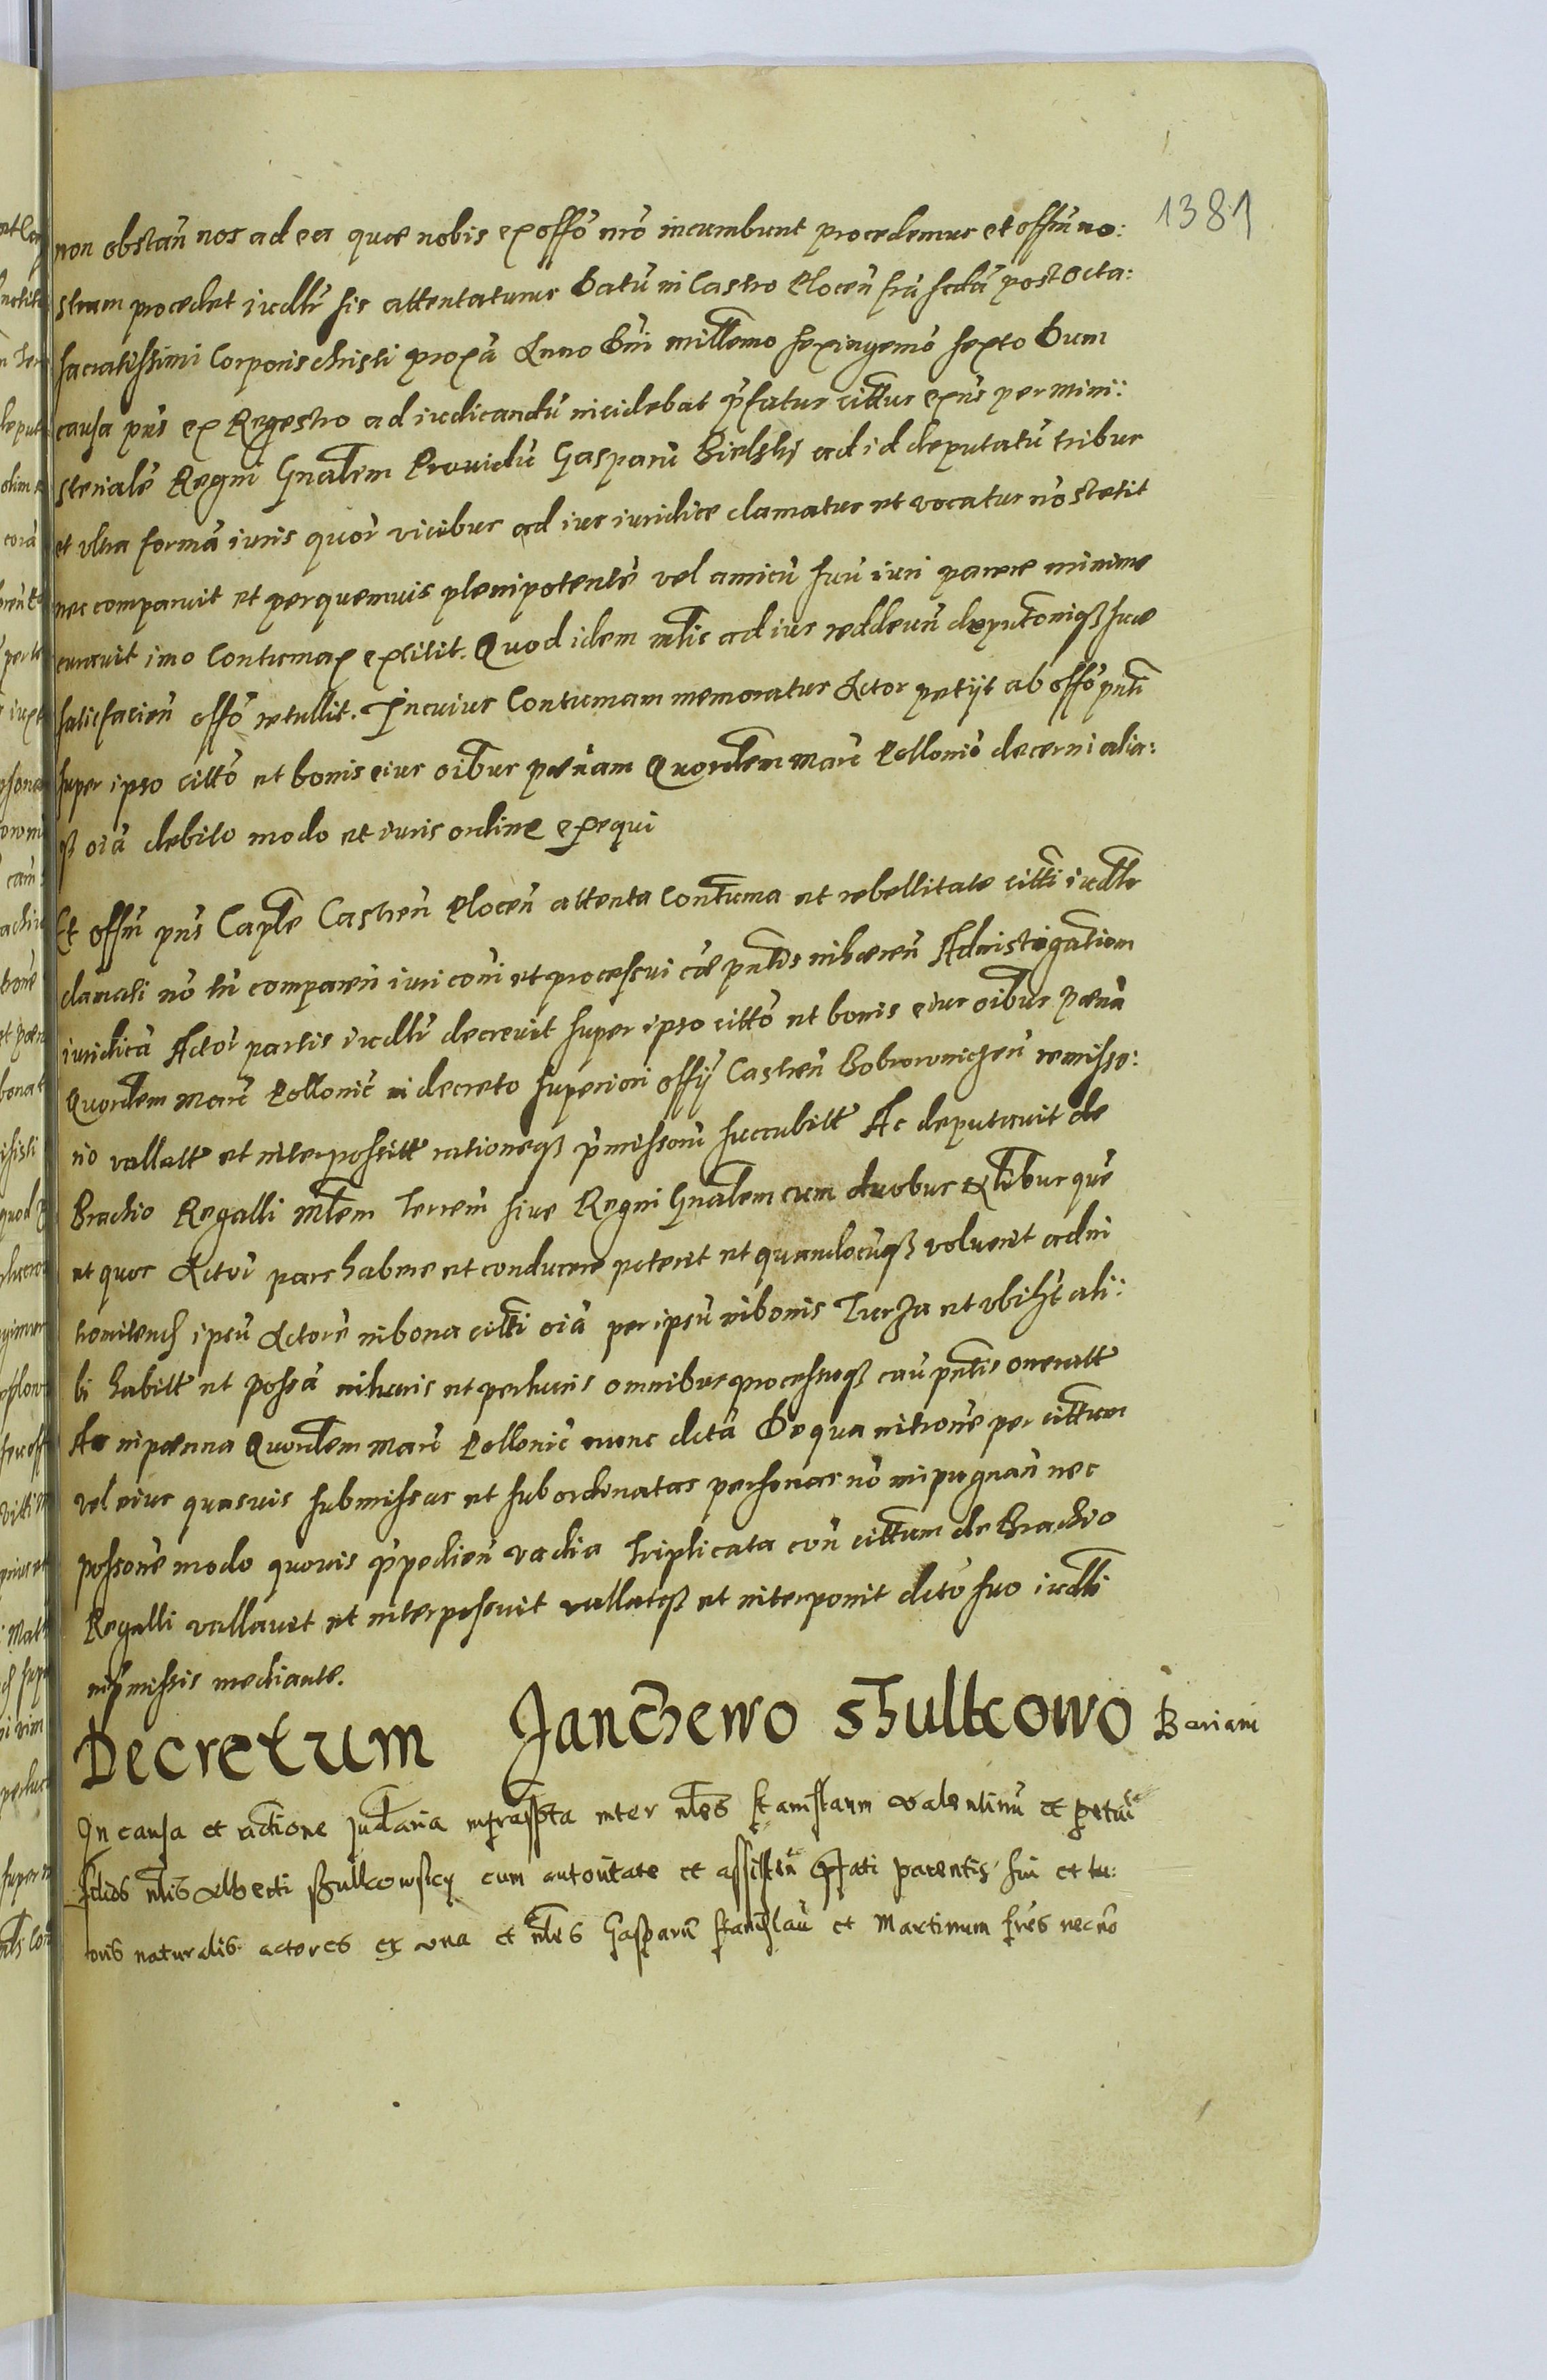 1381
non obstan̄ nos ad ea quæ nobis ex offō nrō incumbunt procedemus et offm̄ no:
strum procedet iudllr̄ sic attentaturus Datū in Castro Plocen̄ fria scdā post Octa:
sacratissimi Corporis christi proxā Anno Dni milllemo sexingemō sexto Dum
causa pn̄s ex Regestro ad iudicandū incidebat p̄fatus cittus ex n̄s per mini:
sterialē Regni Gn̄alem Providū Gasparū Bielsky ad id deputatū tribus
et vltra formā iuris quor̄ vicibus ad ius iuridice clamatus et vocatus nō stetit
nec comparuit et per quemuis plenipotentē vel amicū suū iuri parere minime
curauit imo Contumax extitit. Quod idem mlis ad ius reddeun̄ deputōniqȝ suæ
satisfacien̄ offō retullit. In cuius Contumam memoratus Actor petijt ab offō pn̄ti
super ipso cittō et bonis eius oībus pænam Quordem marc̄ Pollonic̄ decerni alia:
qȝ oīā debito modo et iuris ordine exequi
Et offm̄ pn̄s Caplē Castren̄ Plocen̄ attenta Contuma et rebellitate citti iudllr
clamati nō tn̄ comparen̄ iuri coni et processui cāe pn̄tis inhæren̄ Ad instigationem
iuridicā Actor̄ partis iudllr̄ decreuit super ipso cittō et bonis eius oībus pænā
Quordem marc̄ Pollonic̄ in decreto superiori offij Castren̄ Bobrownicen̄ remisso:
rio vallatt et interpossitt rationeqȝ p̄missorū succubitt Ac deputauit de
Brachio Regalli mlem terrem̄ siue Regni Gn̄alem cum duobus Nlibus que
et quos Actor̄ pars habere et conducere poterit et quandocūqȝ voluerit ad in
tromitend̄ ipsū Actorē in bona citti oīā per ipsū in bonis Turza et vbi hāt ali:
bi habitt et possā in turis et perturis omnibus processuqȝ cau pn̄tis oneratt
Ac in pænna Quordem marc̄ Pollonic̄ nunc dctā De qua intronē per cittum
vel eius quasuis submissas et subordinatas personas nō impugnan̄ nec
possonē modo quouis p̄pedien̄ vadia triplicata con̄ cittum de Brachio
Regalli vallauit et interposuit vallatqȝ et interponit dctō suo iudlli
in p̄missis mediante.
Decretum Janchewo shulkowo Bariani
In causa et actione judiaria infrascpta inter nles stanislaum valentinū et petrū
filios nlis Alberti shulkowsky cum autoritate et assisten̄ p̄fati parentis sui et tu:
oris naturalis actores ex vna et nles Gasparū stanislaū et Martinum frēs necnō